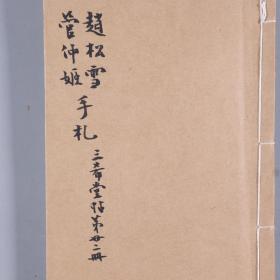 趙松雪
管仲姬
手札
三希堂帖第廿二冊